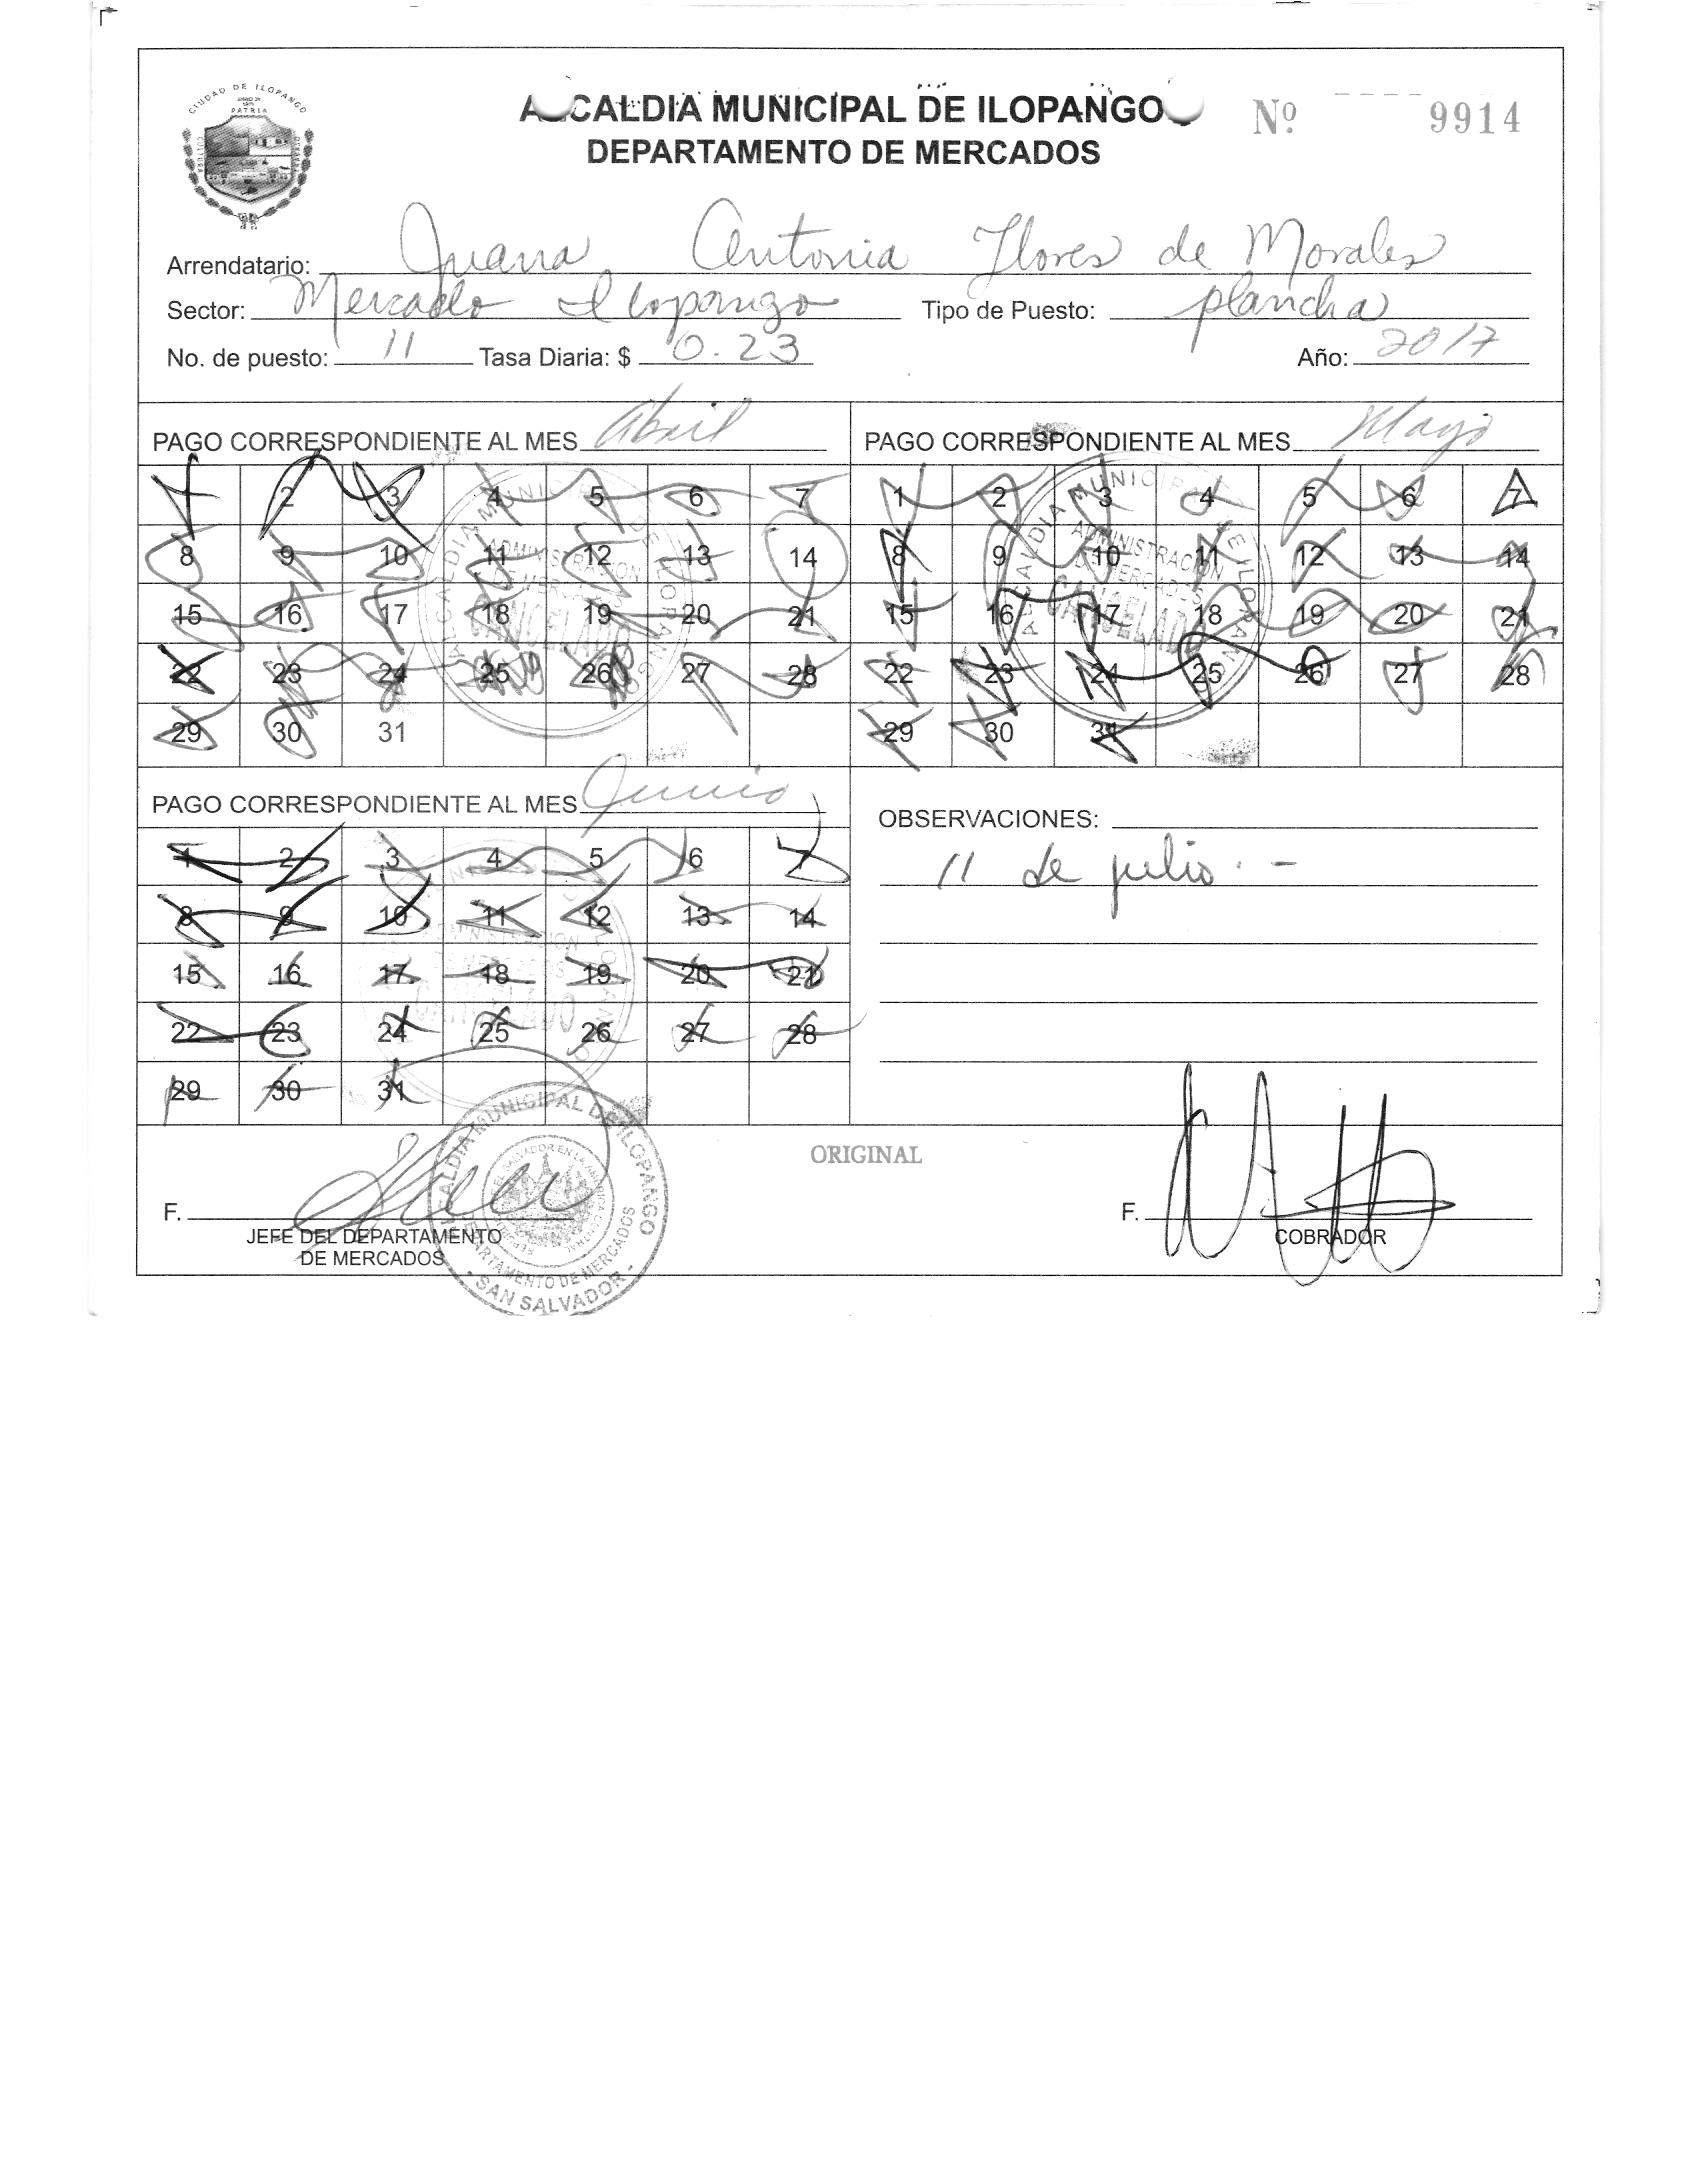 CIUDAD DE ILOPANGO
PATRIA
ALCALDIA MUNICIPAL DE ILOPANGO
DEPARTAMENTO DE MERCADOS
Nº 9914
Arrendatario: Juana Antonia Flores de Morales
Sector: Mercado Ilopango Tipo de Puesto: plancha
No. de puesto: 11 Tasa Diaria: $ 0.23 Año: 2017
PAGO CORRESPONDIENTE AL MES Abril
1 2 3 4 5 6 7
8 9 10 11 12 13 14
15 16 17 18 19 20 21
22 23 24 25 26 27 28
29 30 31
ALCALDIA MUNICIPAL DE ILOPANGO
ADMINISTRACION
DE MERCADOS
CANCELADO
PAGO CORRESPONDIENTE AL MES Mayo
1 2 3 4 5 6 7
8 9 10 11 12 13 14
15 16 17 18 19 20 21
22 23 24 25 26 27 28
29 30 31
ALCALDIA MUNICIPAL DE ILOPANGO
ADMINISTRACION
DE MERCADOS
CANCELADO
PAGO CORRESPONDIENTE AL MES Junio
1 2 3 4 5 6 7
8 9 10 11 12 13 14
15 16 17 18 19 20 21
22 23 24 25 26 27 28
29 30 31
CANCELADO
OBSERVACIONES:
11 de julio. -
ORIGINAL
F.
JEFE DEL DEPARTAMENTO
DE MERCADOS
ALCALDIA MUNICIPAL DE ILOPANGO
DEPARTAMENTO DE MERCADOS
- SAN SALVADOR -
F.
COBRADOR